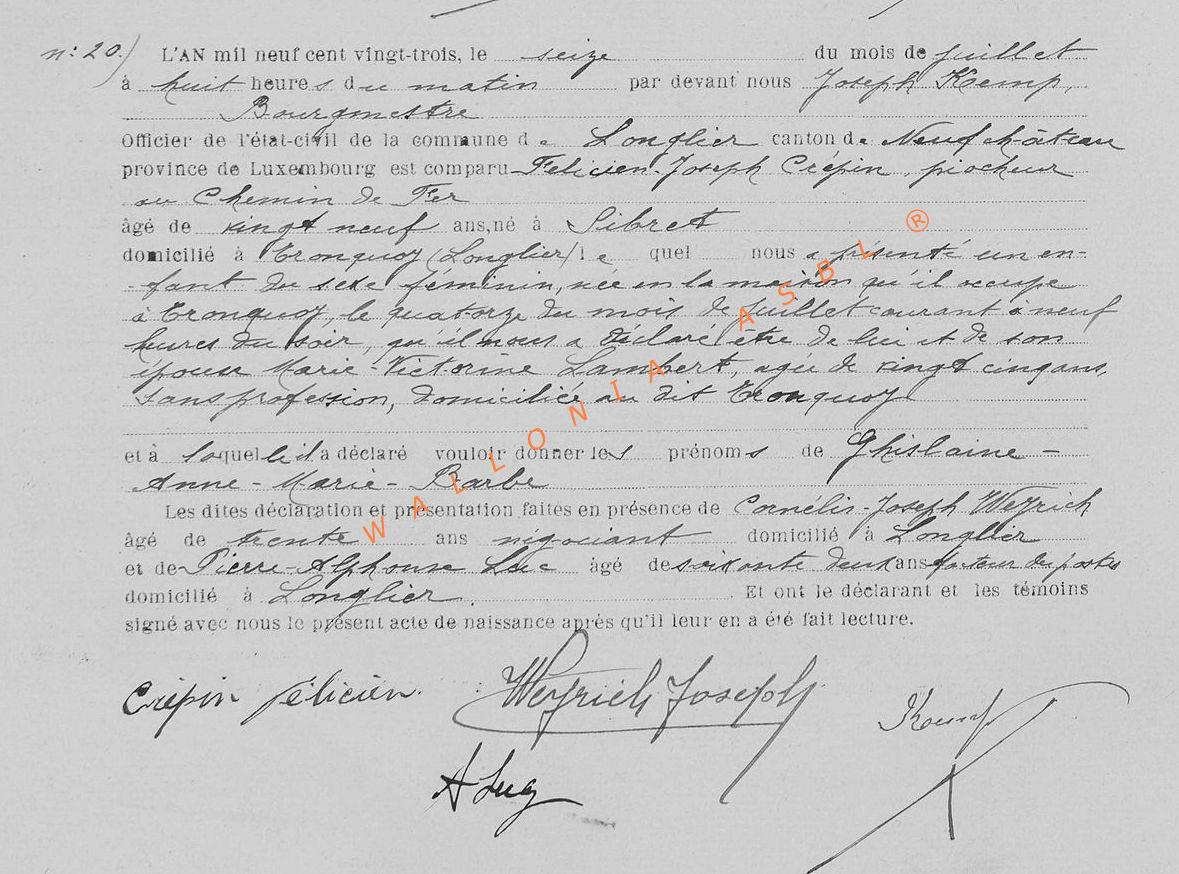 n: 20.) L'AN mil neuf cent vingt-trois, le seize du mois de juillet
à huit heures du matin par devant nous Joseph Kemp,
Bourgmestre
Officier de l'état-civil de la commune de Longlier canton de Neufchâteau
province de Luxembourg est comparu Felicien-Joseph Crépin, piocheur
au Chemin de Fer
âgé de vingt neuf ans, né à Sibret
domicilié à Tronquoy (Longlier) le quel nous a présenté un en-
-fant du sexe féminin, née en la maison qu'il occupe
à Tronquoy, le quatorze du mois de juillet courant à neuf
heures du soir, qu'il nous a déclaré être de lui et de son
épouse Marie-Victorine Lambert, agée de vingt cinq ans,
sans profession, domiciliée au dit Tronquoy
et à laquelle il a déclaré vouloir donner les prénoms de Ghislaine -
Anne - Marie - Barbe
Les dites déclaration et présentation faites en présence de Cornélis-Joseph Weyrich
âgé de trente ans négociant domicilié à Longlier
et de Pierre-Alphonse Luc âgé de soixante deux ans facteur des postes
domicilié à Longlier. Et ont le déclarant et les témoins
signé avec nous le présent acte de naissance après qu'il leur en a été fait lecture.
Crépin félicien Weyrich Joseph Kemp
A Luc
WALLONIA ASBL ®